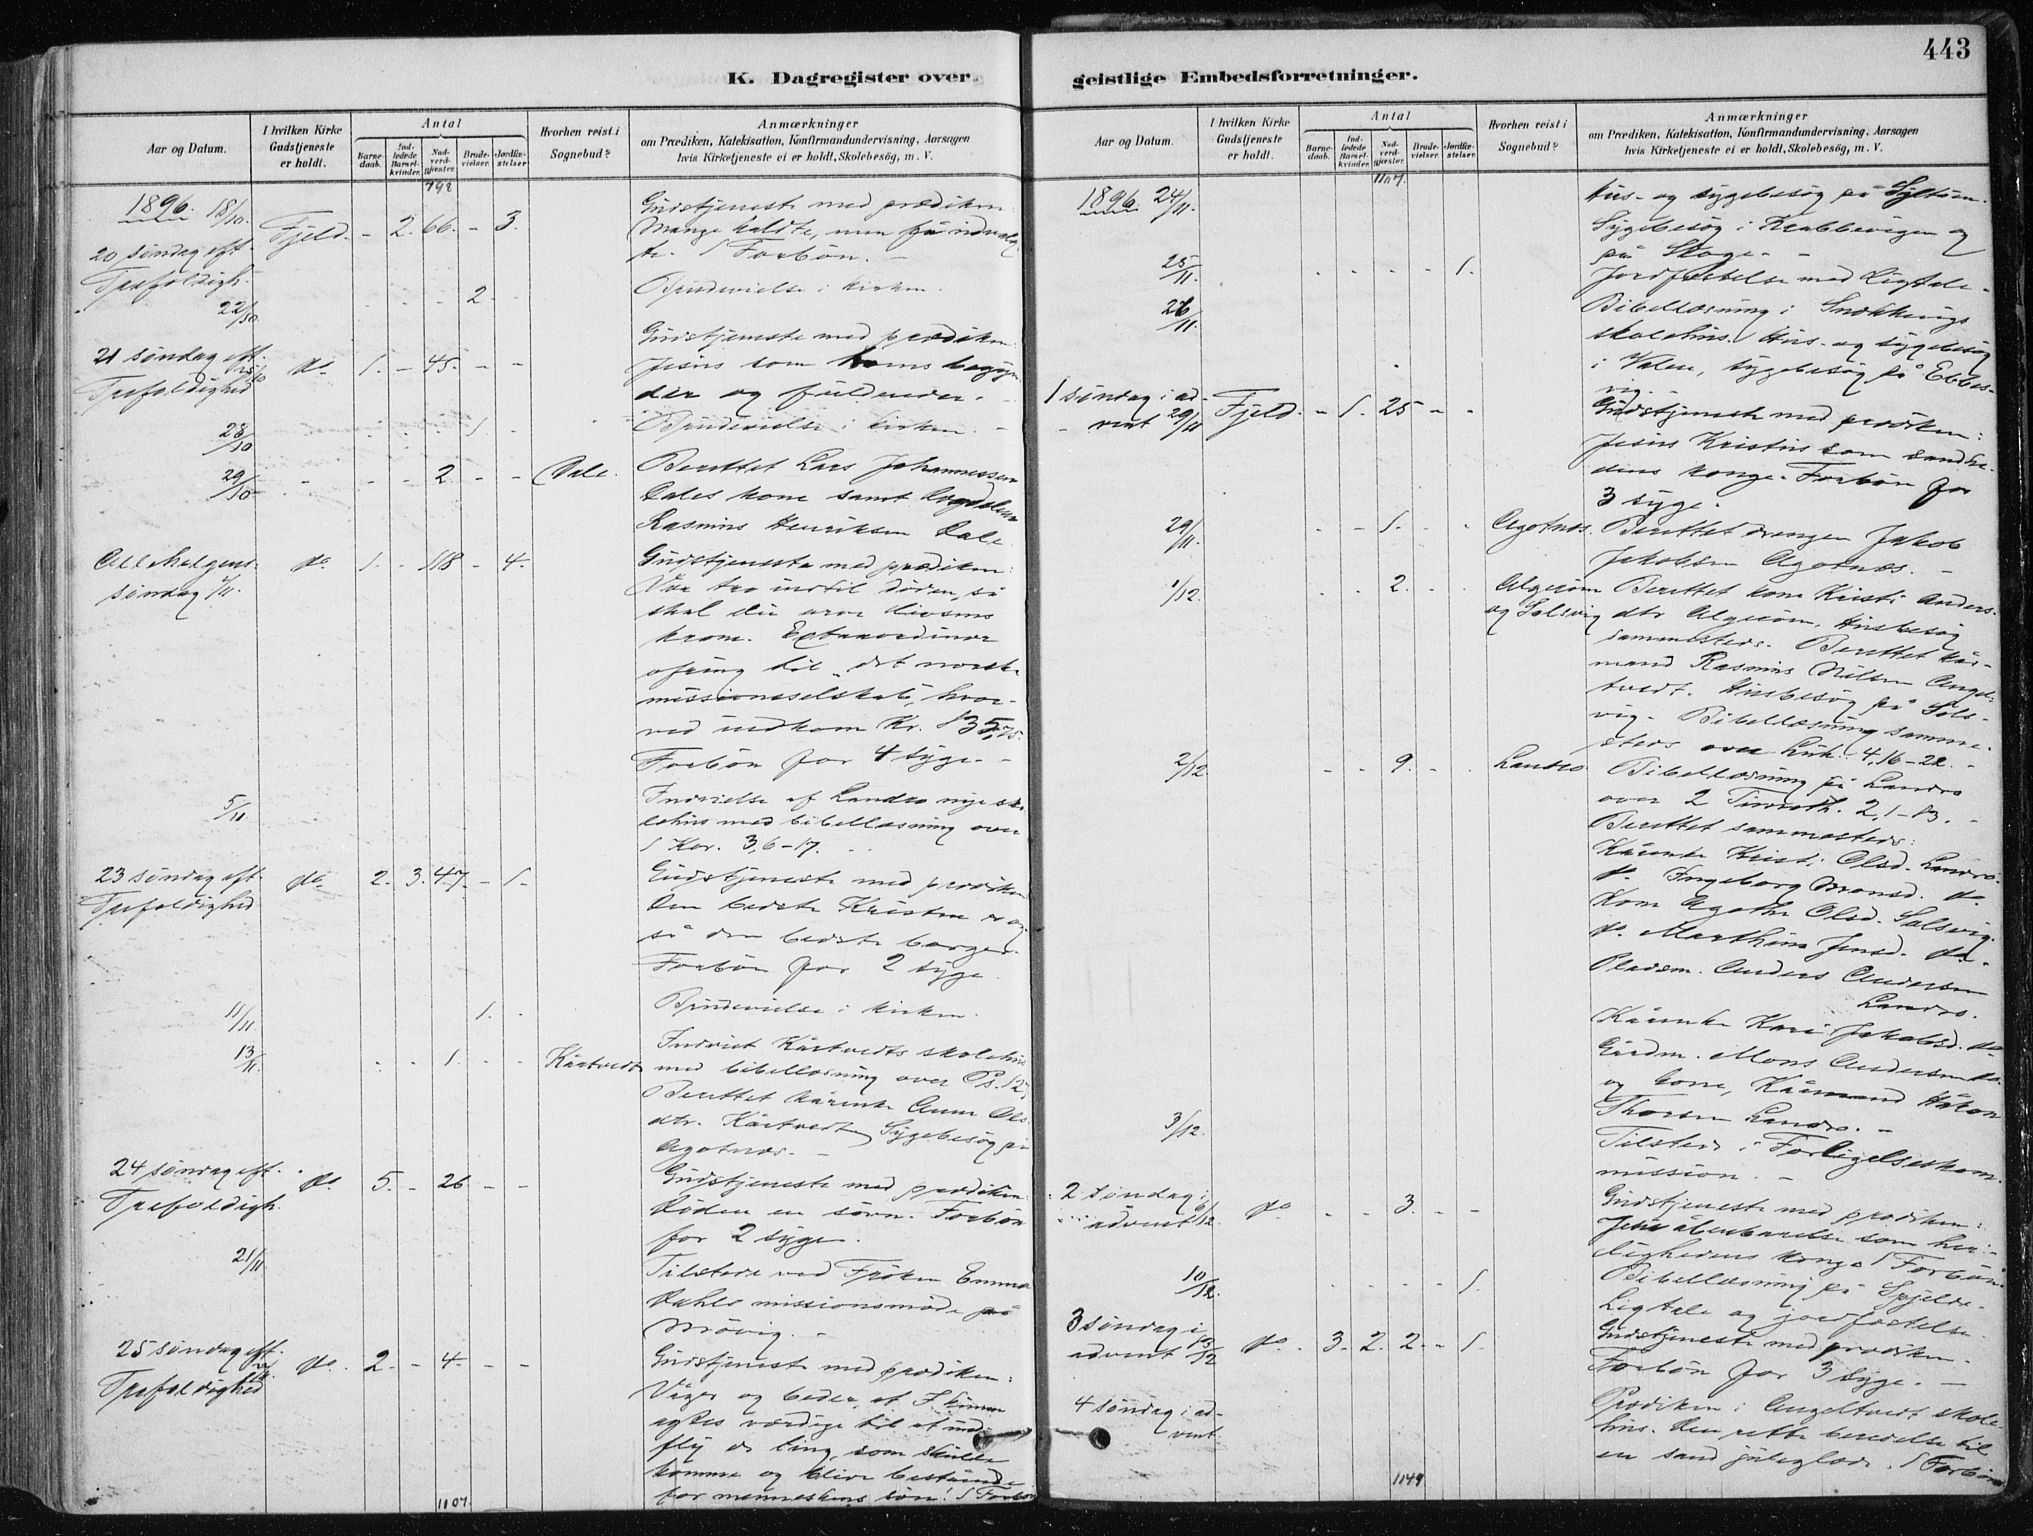 443
K. Dagregister over
geistlige Embedsforretninger.
Aar og Datum.
I hvilken Kirke Gudstjeneste er holdt.
Antal
Barnedaab.
Indledede Barselkvinder.
Nadverdgjester.
Brudevielser.
Jordfæstelser.
Hvorhen reist i Sognebud?
Anmærkninger
om Prædiken, Katekisation, Konfirmandundervisning, Aarsagen
hvis Kirketjeneste ei er holdt, Skolebesög, m. V.
798
1896. 18/10. Fjeld. - 2. 66. - 3. Gudstjeneste med prædiken:
20 søndag eft. Mange kaldte, men få udvalg-
Trefoldigh. te. 1 Forbön. -
22/10 2. Brudevielse i kirken.
21 søndag eft. Gudstjeneste med prædiken:
25/10 do. 1. - 45. - - Jesus som troens begyn
Trefoldighed der og fuldender. -
28/10 1. Brudevielse i kirken. -
29/10 - - - 2. - - Dale. Berettet Lars Johannessen
Dales kone samt
Rasmus Henriksen Dale
Allehelgens- do. 1. - 118 - 4. Gudstjeneste med prædiken:
søndag 1/11. Vær tro indtil døden, så
skal du arve livsens
krone. Extraordinær
ofring til "det norske
missionsselskab", hvor-
ved indkom Kr. 135,75.
Forbön for 4 syge. -
5/11 Indvielse af Landro nye sko
lehus med bibellæsning over
1 Kor. 3,6-17.
23 søndag eft. do. 2. 3. 47. - 1. Gudstjeneste med prædiken
Trefoldighed Den bedste Kristen er og
så den bedste borger.
Forbön for 2 syge.
11/11 1. - Brudevielse i kirken.
13/11 - - 1. - - Kårtvedt Indviet Kårtvedts skolehus
med bibellæsning over Ps. 127
Berettet kårenke Anne Ols
dtr. Kårtvedt. Sygebesøg på
Agotnæs. -
24 søndag eft. do. 5. - 26 - - Gudstjeneste med prædiken:
Trefoldigh. Døden en søvn. Forbön
for 2 syge.
21/11 Tilstede ved Frøken Emma
Dahls missionsmøde på
Møvig. -
25 søndag eft. do. 2. - 4. - - Gudstjeneste med prædiken:
Trefoldighed Våger og beder, at I kunne
agtes værdige til at und-
fly de ting, som skulle
komme og blive bestående
for menneskens søn! 1 Forbön
1107.
Aar og Datum.
I hvilken Kirke Gudstjeneste er holdt.
Antal
Barnedaab.
Indledede Barselkvinder.
Nadverdgjester.
Brudevielser.
Jordfæstelser.
Hvorhen reist i Sognebud?
Anmærkninger
om Prædiken, Katekisation, Konfirmandundervisning, Aarsagen
hvis Kirketjeneste ei er holdt, Skolebesög, m. V.
1107.
1896. 24/11. Hus- og sygebesøg på Syltøen.
Sygebesøg i Krabbevigen og
på Skoge. -
25/11. 1. Jordfæstelse med Ligtale -
26/11 Bibellæsning i Snekkevigs
skolehus. Hus- og sygebesøg
i Valen, sygebesøg på Ebbes-
vig.
1 søndag i ad- Fjeld. - 1. 25 - - Gudstjeneste med prædiken:
- vent 29/11 Jesus Kristus som sandhe-
dens konge. Forbön for
3 syge.
29/11. - - 1. - - Agotnæs. Berettet drengen Jakob
Jakobsen Agotnæs. -
1/12. - - 2. - - Algerøen Berettet kone Kristi Anders-
og Solsvig dtr Algerøen, Husbesøg
sammesteds. Berettet kår-
mand Rasmus Nilsen Angel-
tvedt. Husbesøg på Sols-
vig. Bibellæsning samme-
steds over Luk. 4,16-22. -
2/12. - - 9. - - Landro. Bibellæsning på Landro
over 2 Timoth. 2,1-13. -
Berettet sammesteds:
Kårenke Kristi Olsd. Landro.
do. Ingeborg Monsd. do.
Kone Agothe Olsd. Solsvig.
do. Marthine Jensd. do.
Pladsm. Anders Andersen
Landro.
Kårenke Kari Jakobsd. do
Gårdm. Mons Andersen do.
og kone, Kårmand Håkon
Thorsen Landro. -
3/12. Tilstede i Forligelseskom-
mission. -
2 søndag i do - - 3. - - Gudstjeneste med prædiken:
advent 6/12. Jesu åbenbarelse som her-
lighedens konge 1 Forbön.
10/12. 1. Bibellæsning på Spjelde.
Ligtale og jordfæstelse
3 søndag i do. - 3. 2. 2. - 1. Gudstjeneste med prædiken.
advent 13/12 Forbön for 3 syge. -
4 søndag i ad- Prædiken i Angeltvedt skole-
vent. hus. Den rette beredelse til
en sand juleglæde. 1 Forbön
1149